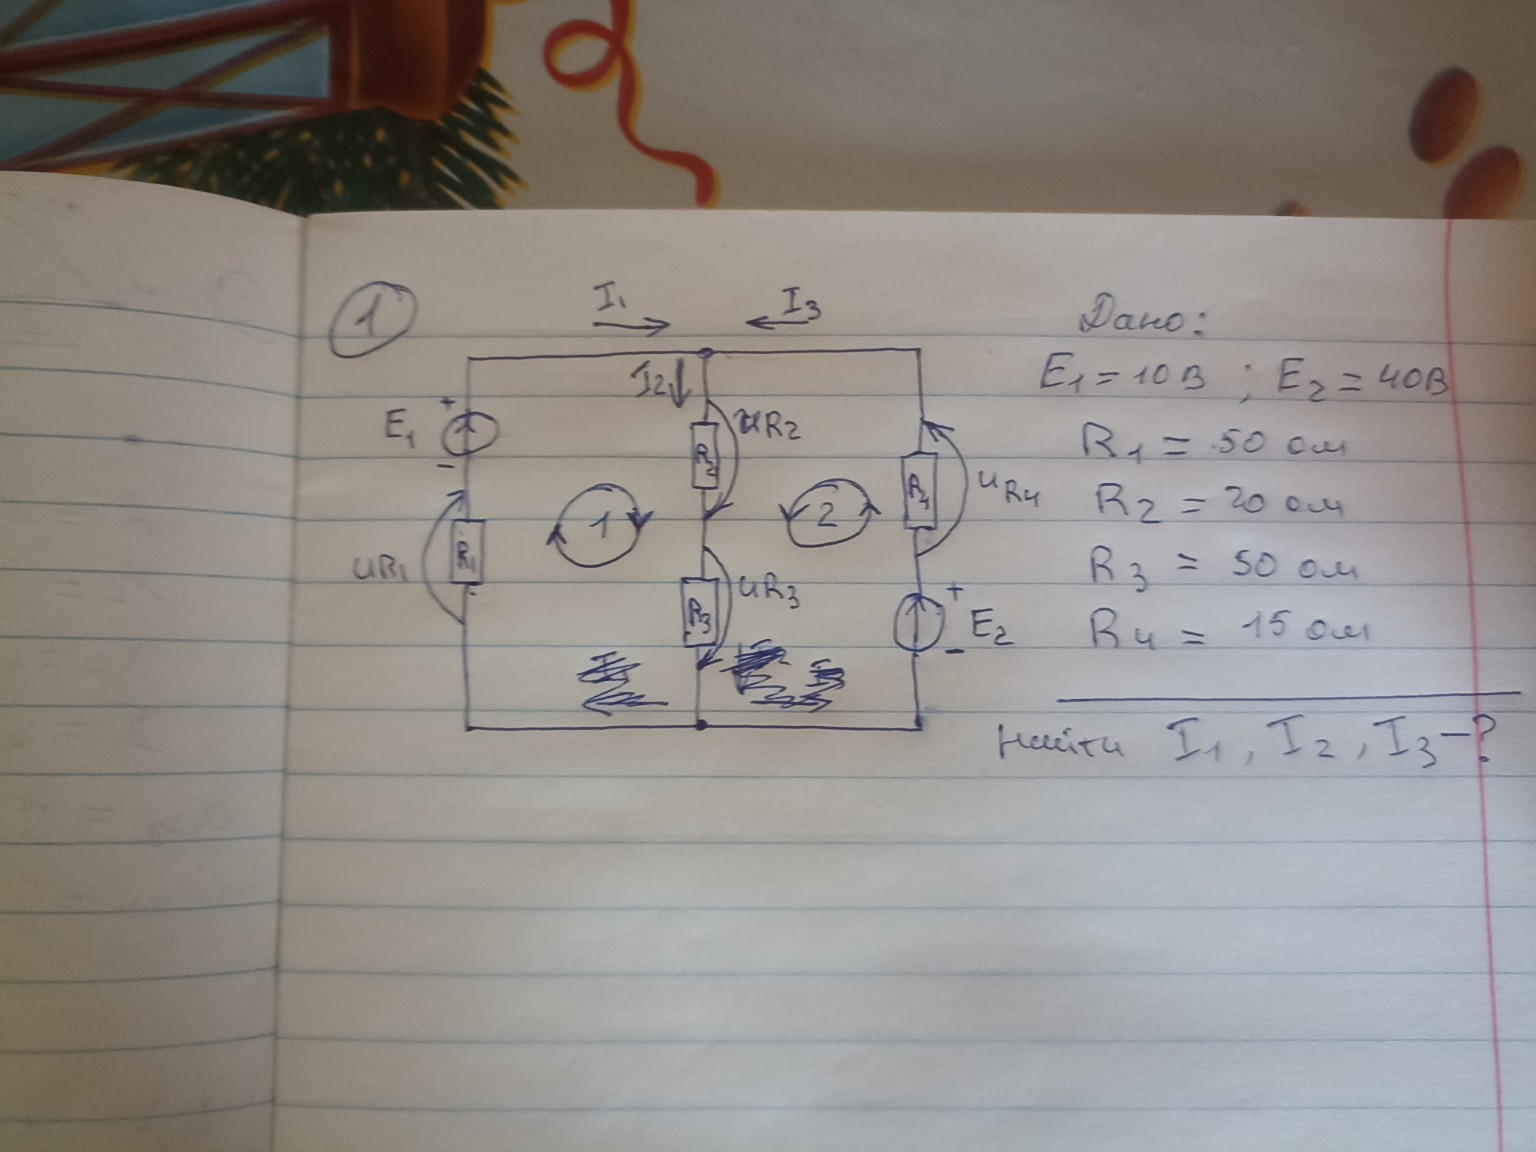 1
I₁ I₃
I₂
+
E₁
-
R₂ uR₂
R₄ uR₄
1 2
uR₁ R₁
R₃ uR₃
+
E₂
-
Дано:
E₁ = 10 В ; E₂ = 40 В
R₁ = 50 ом
R₂ = 20 ом
R₃ = 50 ом
R₄ = 15 ом
Найти I₁, I₂, I₃ - ?